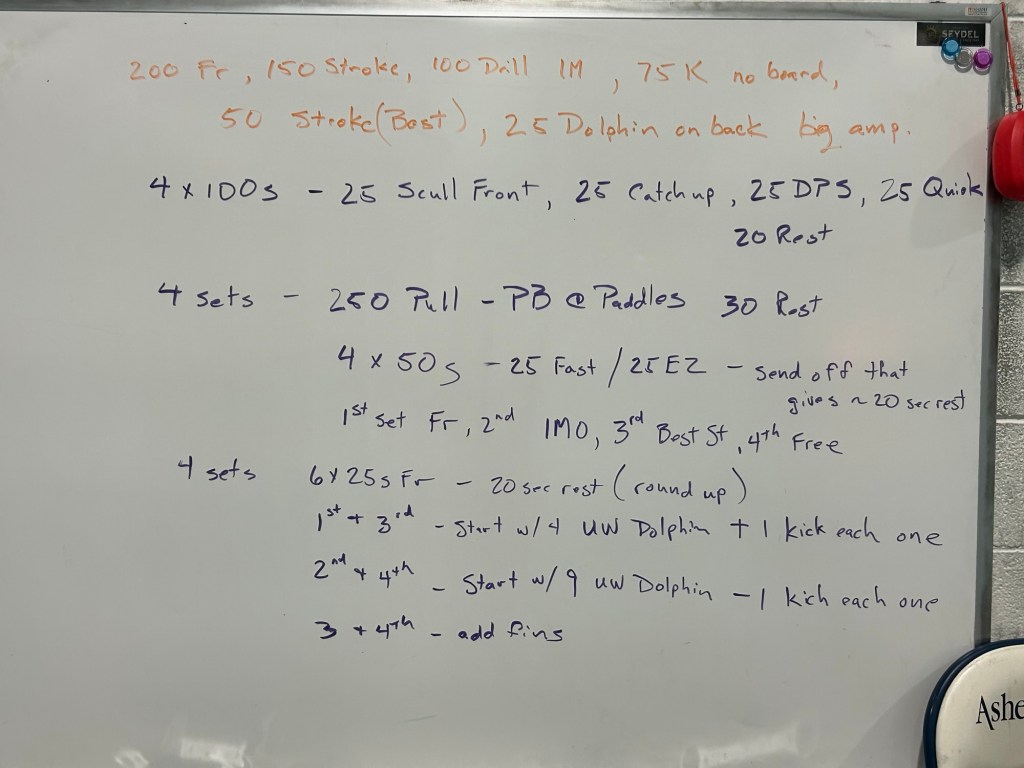 SEYDEL
200 Fr, 150 Stroke, 100 Drill IM, 75 K no board,
50 Stroke (Best), 25 Dolphin on back big amp.
4 x 100s - 25 Scull Front, 25 Catch up, 25 DPS, 25 Quick
20 Rest
4 sets - 250 Pull - PB @ Paddles 30 Rest
4 x 50s - 25 Fast / 25 EZ - send off that
gives ~ 20 sec rest
1st set Fr, 2nd IMO, 3rd Best St, 4th Free
4 sets 6 x 25s Fr - 20 sec rest (round up)
1st + 3rd - Start w/ 4 UW Dolphin + 1 kick each one
2nd + 4th - Start w/ 9 UW Dolphin - 1 kick each one
3 + 4th - add fins
Ashe